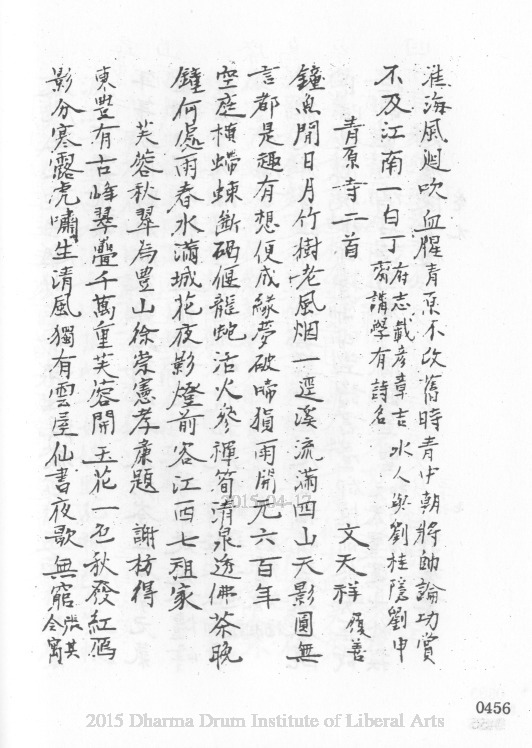 淮海風迴吹血腥青原不改舊時青中朝將帥論功賞
不及江南一白丁府志載彥章吉水人與劉桂隱劉申齋講學有詩名
青原寺二首 文天祥履善
鐘魚閒日月竹樹老風烟一逕溪流滿四山天影圓無
言都是趣有想便成緣夢破啼猿雨開元六百年
空庭橫蠕蝀斷碣偃龍蛇活火參禪筍清泉透佛茶晚
鐘何處雨春水滿城花夜影燈前客江西七祖家
芙蓉秋翠為豊山徐崇憲孝廉題 謝枋得
東豐有古峰翠疊千萬重芙蓉開玉花一色秋發紅鴈
影分寒露虎嘯生清風獨有雲屋仙書夜歌無窮
2015-04-17
0456
2015 Dharma Drum Institute of Liberal Arts